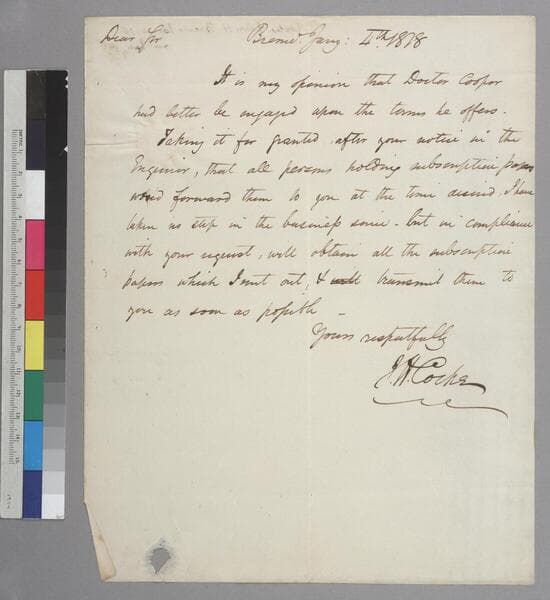 Dear Sir Bremo Jany: 4th 1818
It is my opinion that Doctor Cooper
had better be engaged upon the terms he offers.
Taking it for granted, after your notice in the
Enquirer, that all persons holding subscription papers
would forward them to you at the time desired, I have
taken no step in the business since - but in compliance
with your request, will obtain all the subscription
papers which I sent out, & will transmit them to
you as soon as possible -
Yours respectfully
J. H. Cocke